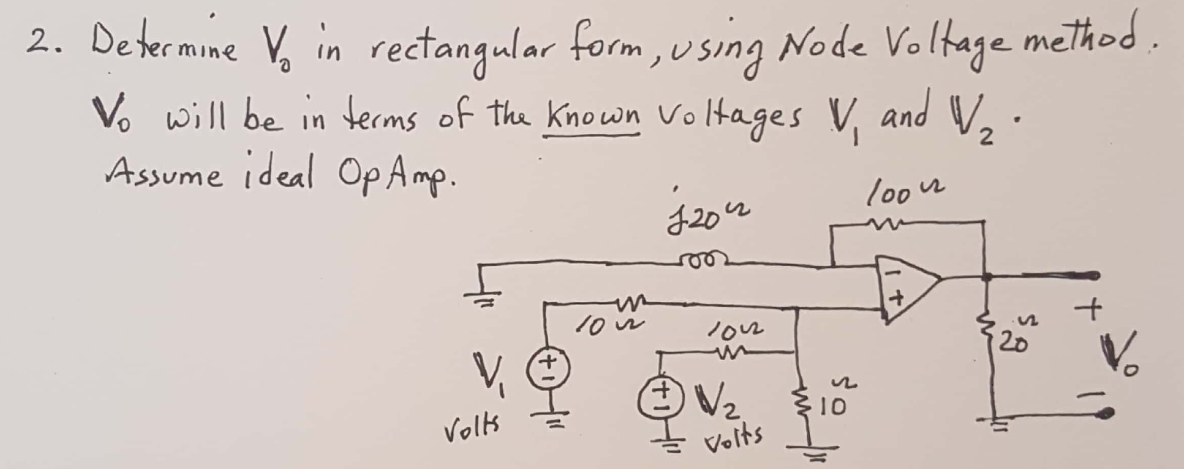 2. Determine V₀ in rectangular form, using Node Voltage method.
V₀ will be in terms of the Known Voltages V₁ and V₂.
Assume ideal OpAmp.
j20Ω
100Ω
10Ω
10Ω
10Ω
20Ω
-
+
+
V₀
-
V₁
Volts
+
-
V₂
Volts
+
-